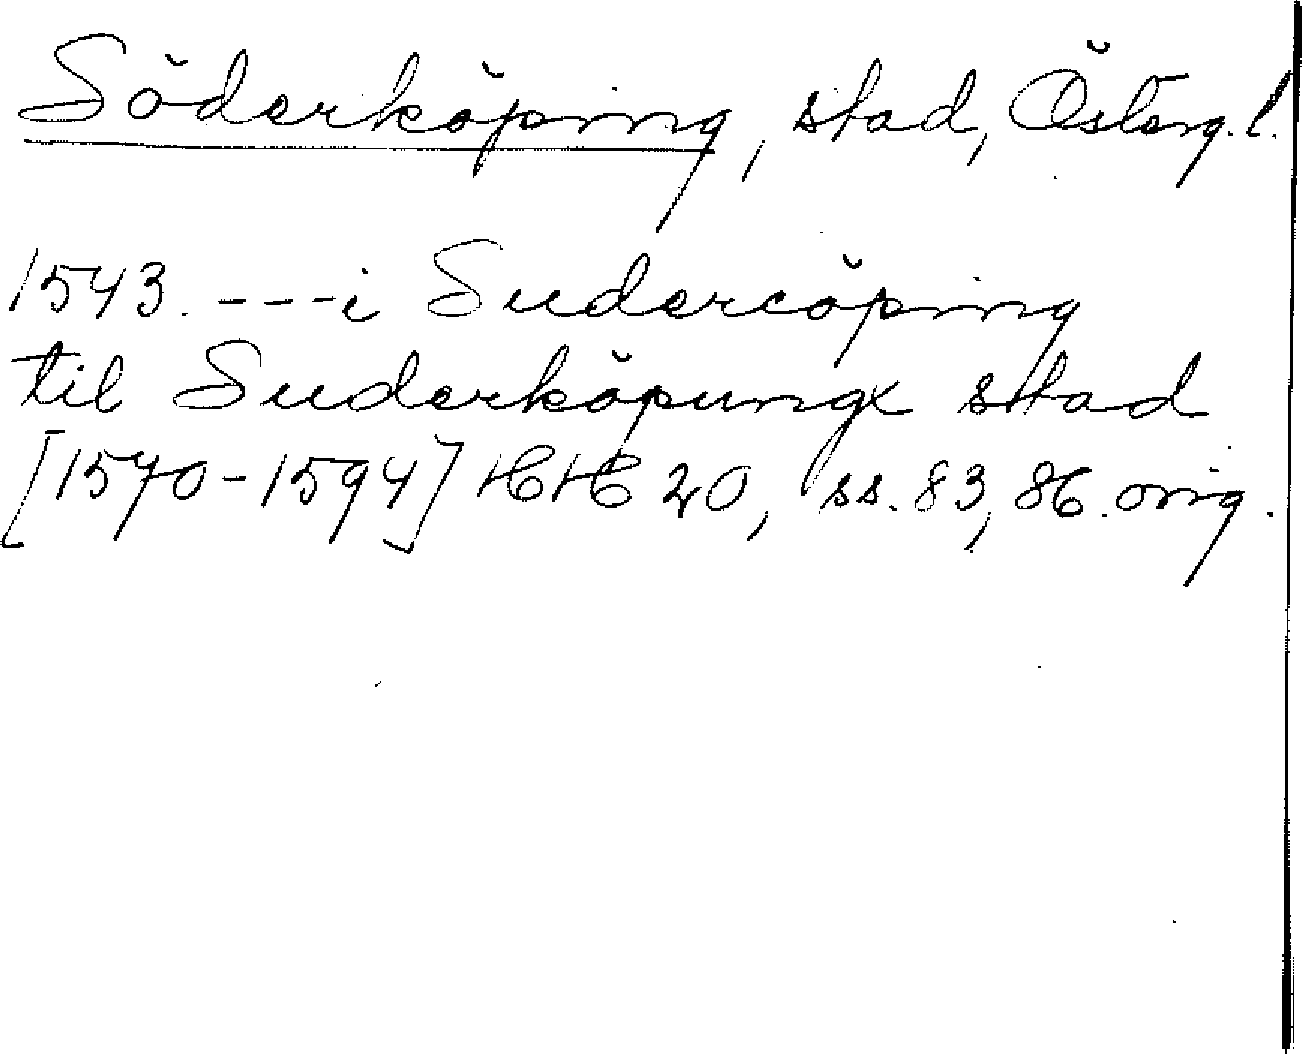 Söderköping, stad, Österg.l.
1543. ---i Sudercöping
til Suderköpungx stad
[1570-1594] HH 20, ss. 83, 86. orig.